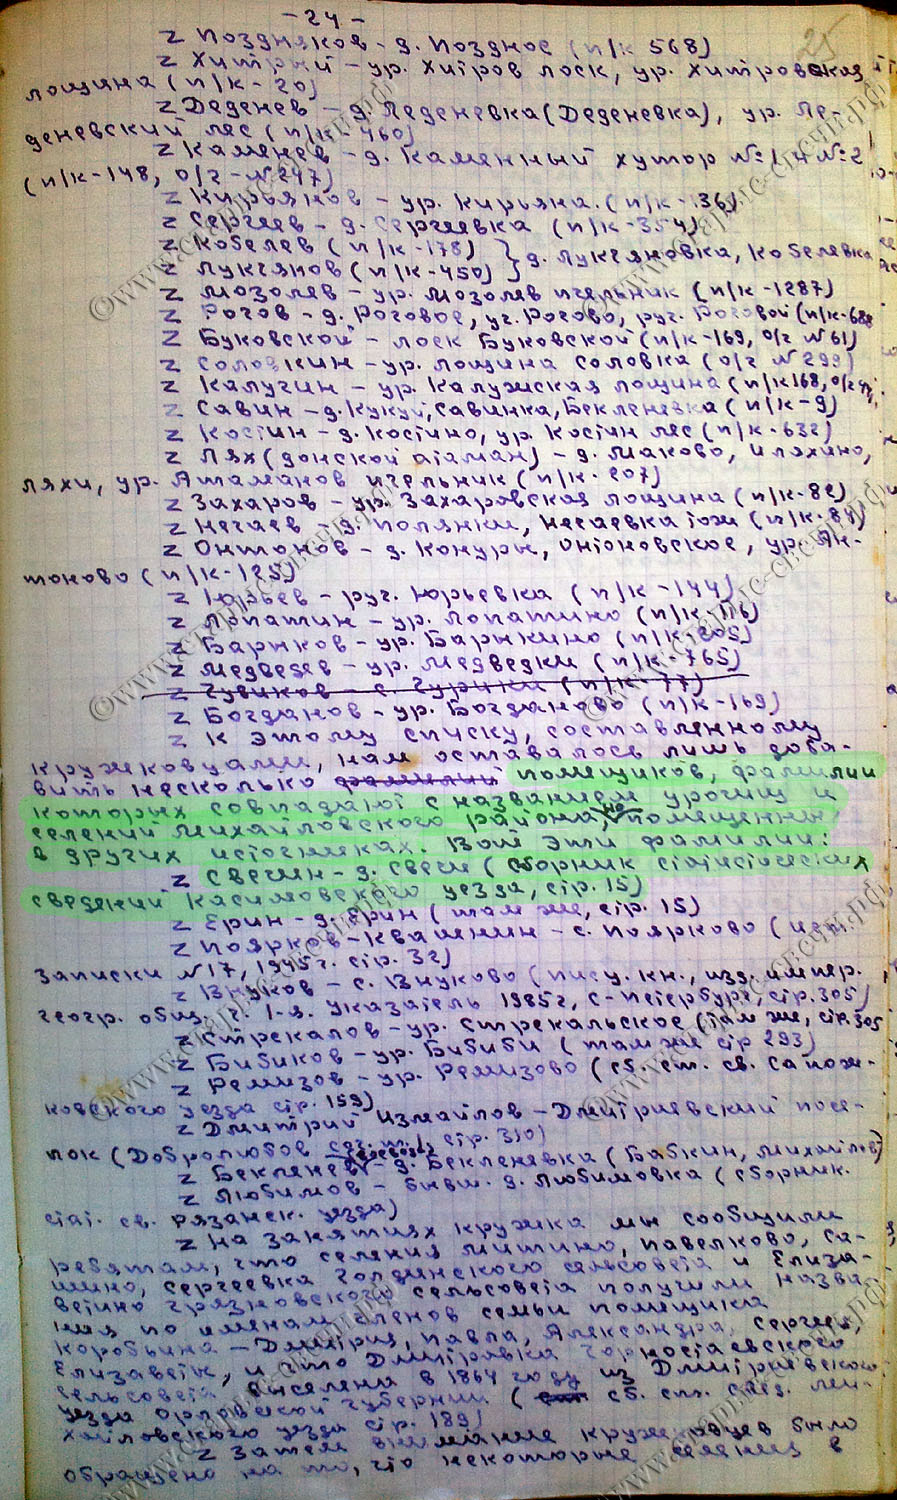 - 24 -
25
Z Поздняков - д. Поздное (п/к 568)
Z Хитрый - ур. Хитров лоск, ур. Хитровская
лощина (п/к - 20)
Z Деденев - д. Леденевка (Деденовка), ур. Ле-
деневский лес (п/к 460)
Z Каменев - д. Каменный хутор №1 и №2
(п/к-148, о/г - №247)
Z Кирьянов - ур. Кирьяна. (п/к - 36)
Z Сергеев - д. Сергеевка (п/к - 354)
Z Кобелев (п/к - 178) } д. Лукьяновка, Кобелевка
Z Лукьянов (п/к - 450)
Z Мозолев - ур. Мозолев пчельник (п/к - 1287)
Z Рогов - д. Роговое, уч. Рогово, руч. Роговой (п/к-688
Z Буковской - лоск Буковской (п/к - 169, о/г №61)
Z Соловкин - ур. лощина Соловка (о/г №299)
Z Калугин - ур. Калужская лощина (п/к 168, о/г
Z Савин - д. Кукуй, Савинка, Бекленевка (п/к - 9)
Z Костин - д. Костино, ур. Костин лес (п/к - 632)
Z Лях (донской атаман) - д. Маково, Иляхино,
ляхи, ур. Атаманов пчельник (п/к - 207)
Z Захаров - ур. Захаровская лощина (п/к - 82)
Z Нечаев - д. Полянки, Нечаевка тож (п/к - 84)
Z Онтонов - д. Конуры, Онтоновское, ур. Ан-
тоново (п/к - 125)
Z Юрьев - руч. Юрьевка (п/к - 144)
Z Лопатин - ур. Лопатино (п/к 116)
Z Барыков - ур. Барыкино (п/к - 205)
Z Медведев - ур. Медведки (п/к - 765)
Z Чувиков - с Чурики (п/к - 77)
Z Богданов - ур. Богданово (п/к - 169)
Z К этому списку, составленному
кружковцами, нам оставалось лишь доба-
вить несколько фамилий помещиков, фамилии
которых совпадают с названием урочищ и
селений Михайловского района, но помещенных
в других источниках. Вот эти фамилии:
Z Свечин - д. Свечи (сборник статистических
сведений Касимовского уезда, стр. 15)
Z Ерин - д. Ерин (там же, стр. 15)
Z Поярков-Квашнин - с. Поярково (ист.
записки №17, 1945 г. стр. 32)
Z Внуков - с. Внуково (писц. кн., изд. импер.
геогр. общ. ч. 1-я. Указатель 1985 г, С-Петербург, стр. 305)
Z Стрекалов - ур. Стрекальское (там же, стр. 305
Z Бибиков - ур. Бибиби (там же стр 293)
Z Ремизов - ур. Ремизово (сб. ст. св. Сапож-
ковского уезда стр. 159)
Z Дмитрий Измайлов - Дмитриевский посе-
лок (Добролюбов стр. 310)
Z Бекленев - д. Бекленевка (Бабкин, Михайлов)
Z Любимов - бывш. д. Любимовка (сборник
стат. св. Рязанск. уезда)
Z На занятиях кружка мы сообщили
ребятам, что селения Митино, Павелково, Са-
шино, Сергеевка Голдинского сельсовета и Елиза-
ветино Грязновского сельсовета получили назва
ния по именам членов семьи помещика
Коробьина - Дмитрия, Павла, Александра, Сергея,
Елизаветы, и что Дмитровка Горностаевского
сельсовета выселена в 1864 году из Дмитриевского
уезда Орловской губернии (сб. ст. свед. Ми-
хайловского уезда стр. 189)
Z Затем внимание кружковцев было
обращено на то, что некоторые селения в
©www.старис-свечи.рф